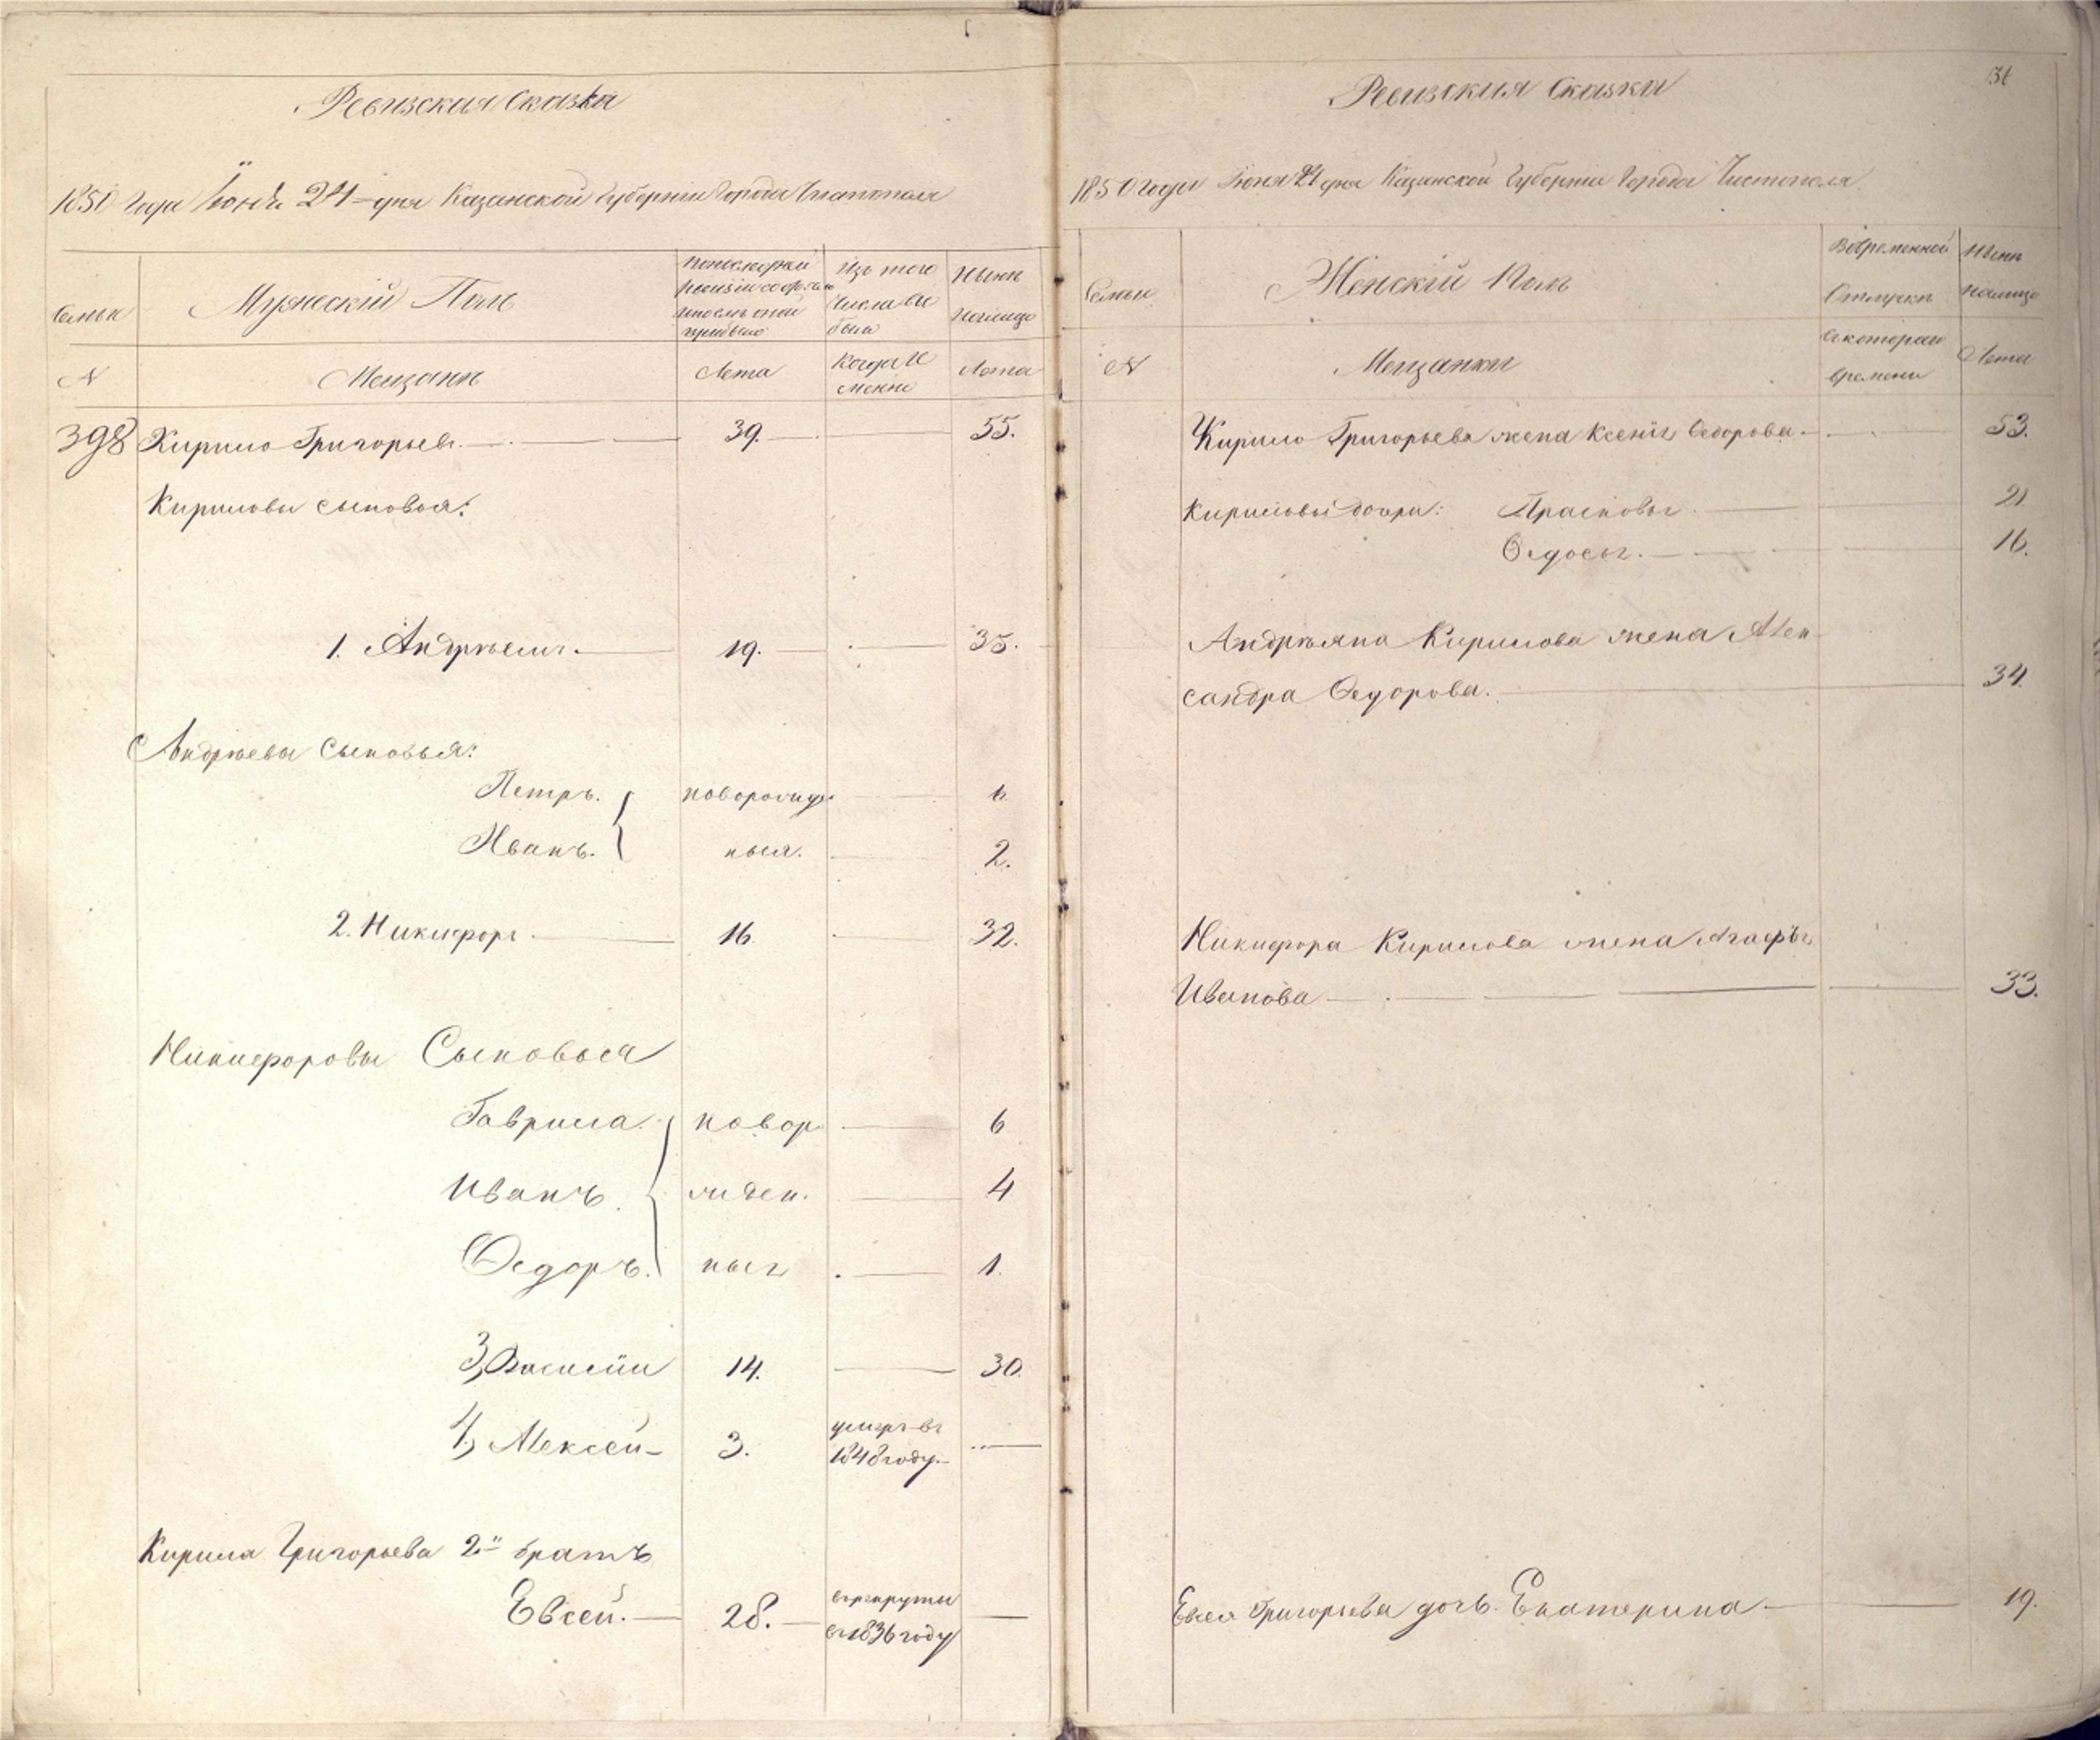 Ревизская Сказка
1850 Года Іюня 24 дня Казанской Губерніи Города Чистополя
Семьи
Мужескій Полъ
По последней
ревизіи состояло
и после оной
прибыло
Изъ того
числа вы
было
Ныне
на лицо
№
Мещане
Лета
Когда И
менно
Лета
398 Кирило Григорьев. 39. 55.
Кириловы сыновья:
1. Андреянъ. 19. 35.
Андреевы Сыновья:
Петръ. новорожде 6
Иванъ. ныя. 2.
2. Никифоръ 16. 32.
Никифоровы Сыновья
Гаврила. новор 6
Иванъ. жден. 4
Федоръ. ныя 1.
3, Василіи 14. 30.
4, Алексей 3. умеръ въ
1848 году.
Кирила Григорьева 2й братъ
Евсей. 28. в рекруты
въ 1836 году
Ревизская Сказка
1850 Года Іюня 24 дня Казанской Губерніи Города Чистополя
Семьи
Женскій Полъ
Во временной
Отлучке
Ныне
на лицо
№
Мещанки
С котораго
времени
Лета
Кирило Григорьева жена Ксенія Федорова 53.
Кириловы дочери: Прасковья 21
Федосья. 16.
Андреяна Кирилова жена Алек
сандра Федорова. 34.
Никифора Кирилова жена Агафья
Иванова 33.
Евсея Григорьева дочь Екатерина 19.